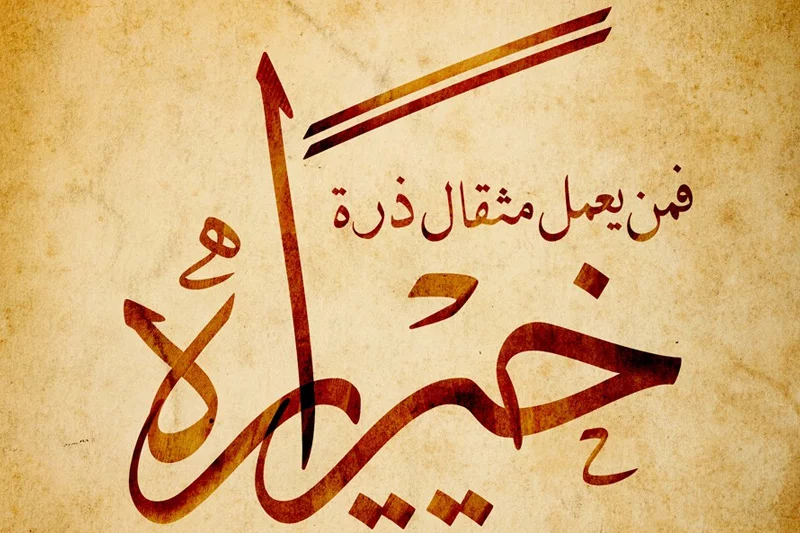 فمن يعمل مثقال ذرة
خيراً يره